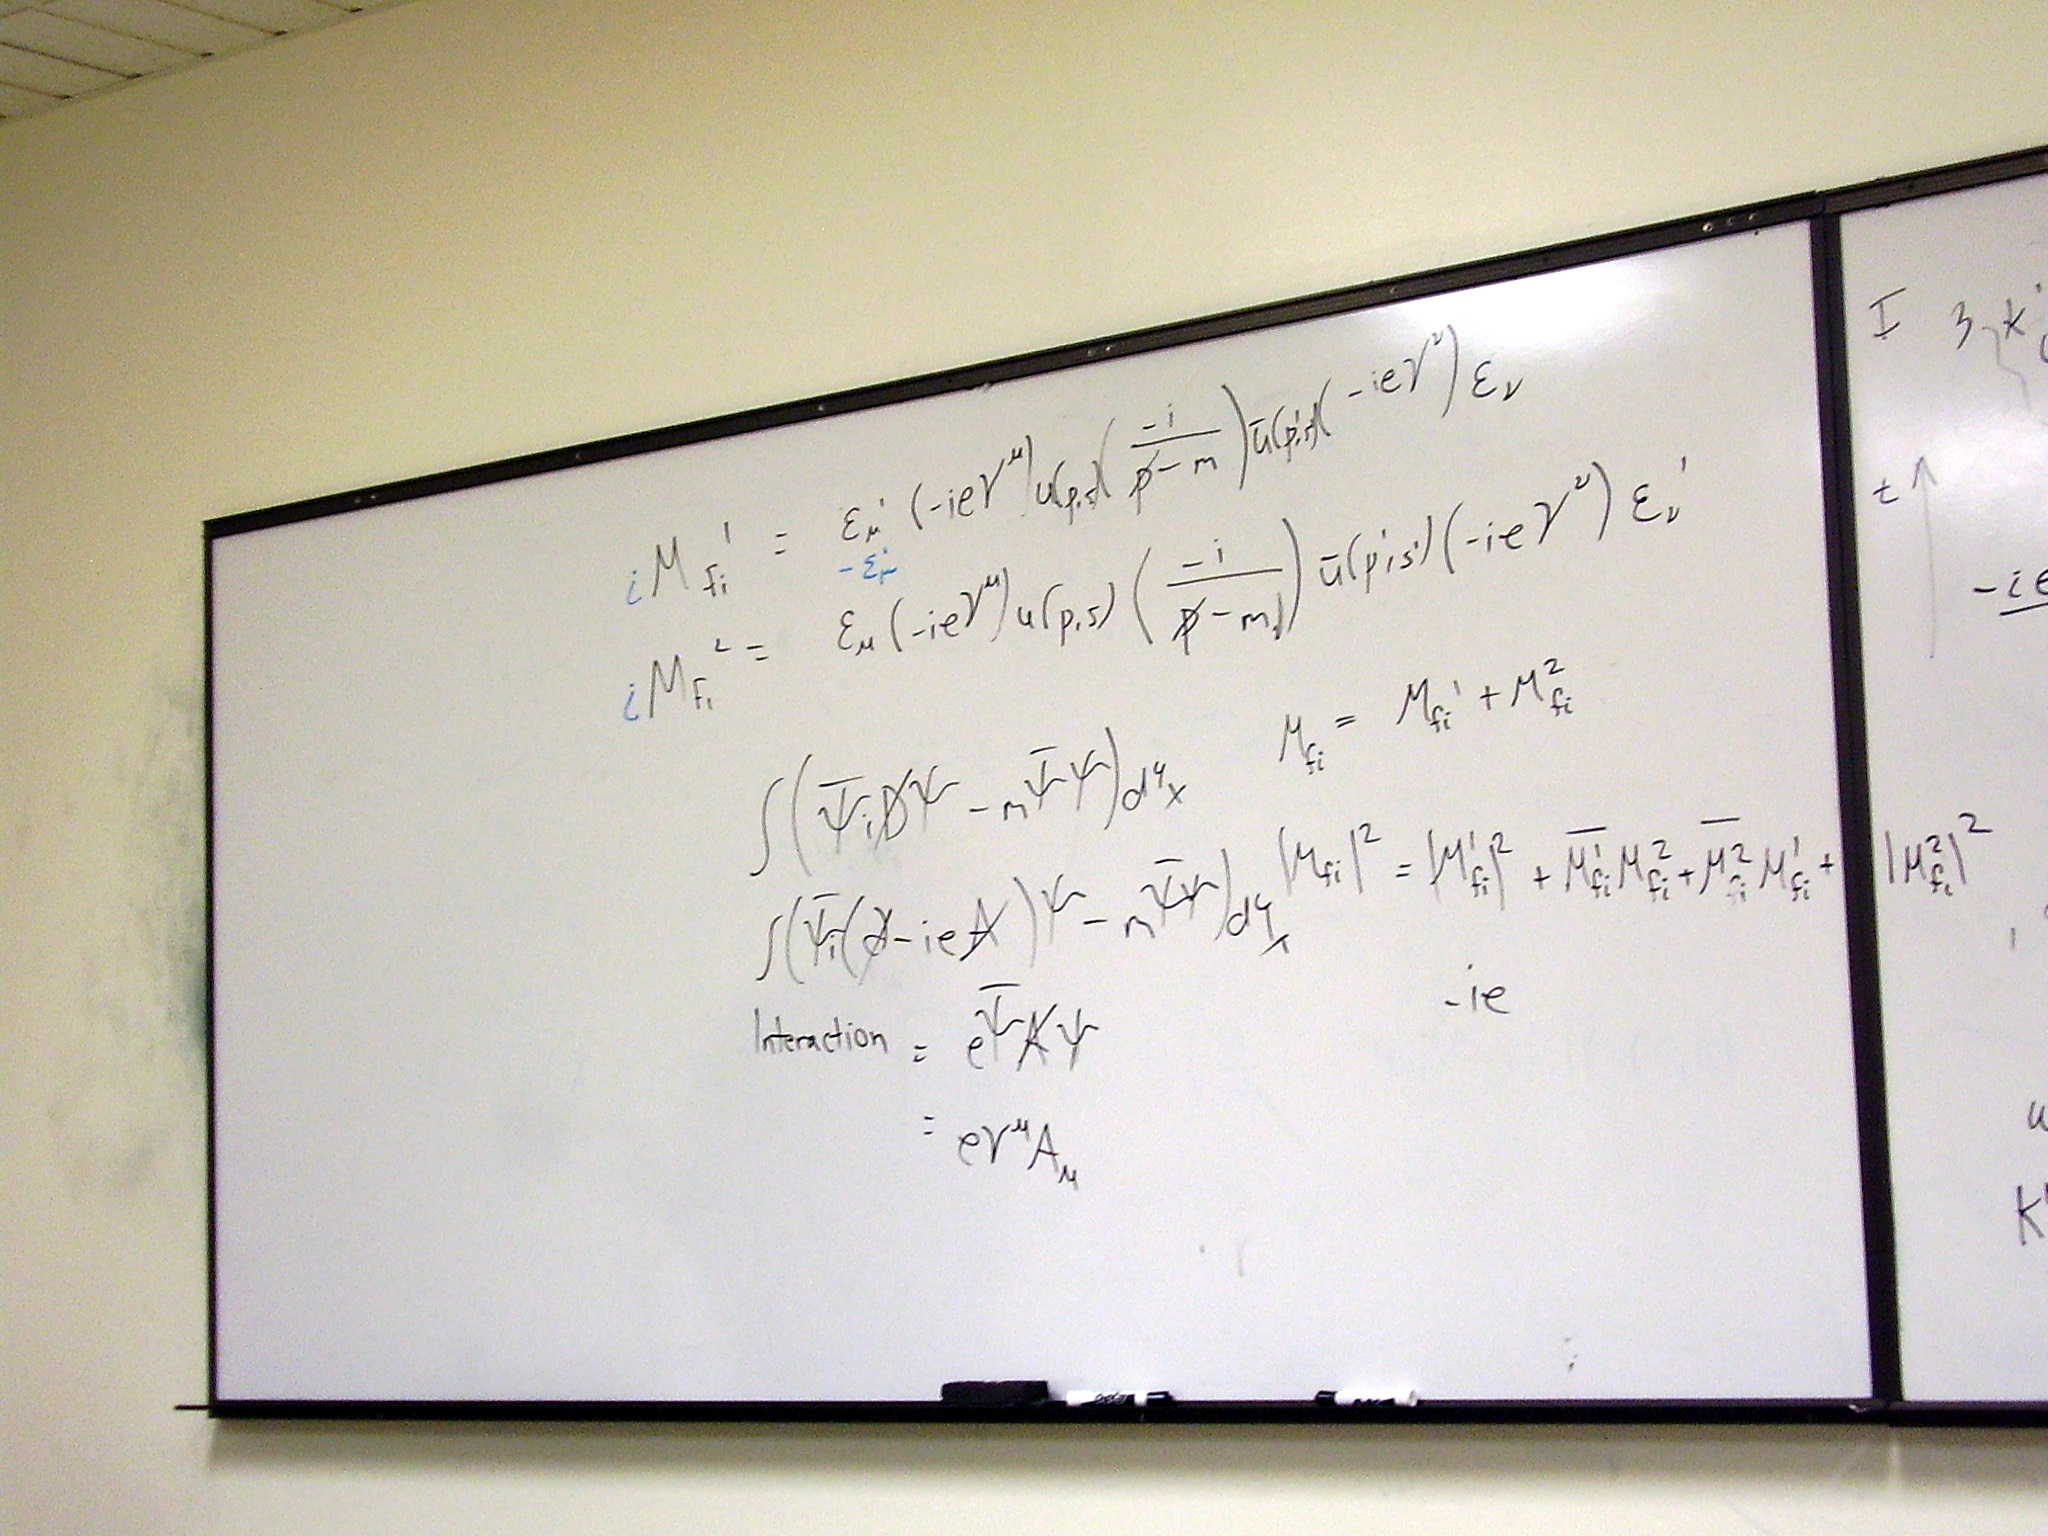 iM_fi^1 = ε_μ' (-ieγ^μ) u(p,s) (-i/(p̸-m)) ū(p',s') (-ieγ^ν) ε_ν
-ε_μ'
iM_fi^2 = ε_μ (-ieγ^μ) u(p,s) (-i/(p̸-m)) ū(p',s') (-ieγ^ν) ε_ν'
M_fi = M_fi^1 + M_fi^2
∫(ψ̄iD̸ψ - mψ̄ψ)d⁴x
|M_fi|² = |M_fi^1|² + M̄_fi^1 M_fi^2 + M̄_fi^2 M_fi^1 + |M_fi^2|²
∫(ψ̄i(∂̸ - ieA̸)ψ - mψ̄ψ)d⁴x
-ie
Interaction = eψ̄A̸ψ
= eγ^μA_μ
I
t
-ie